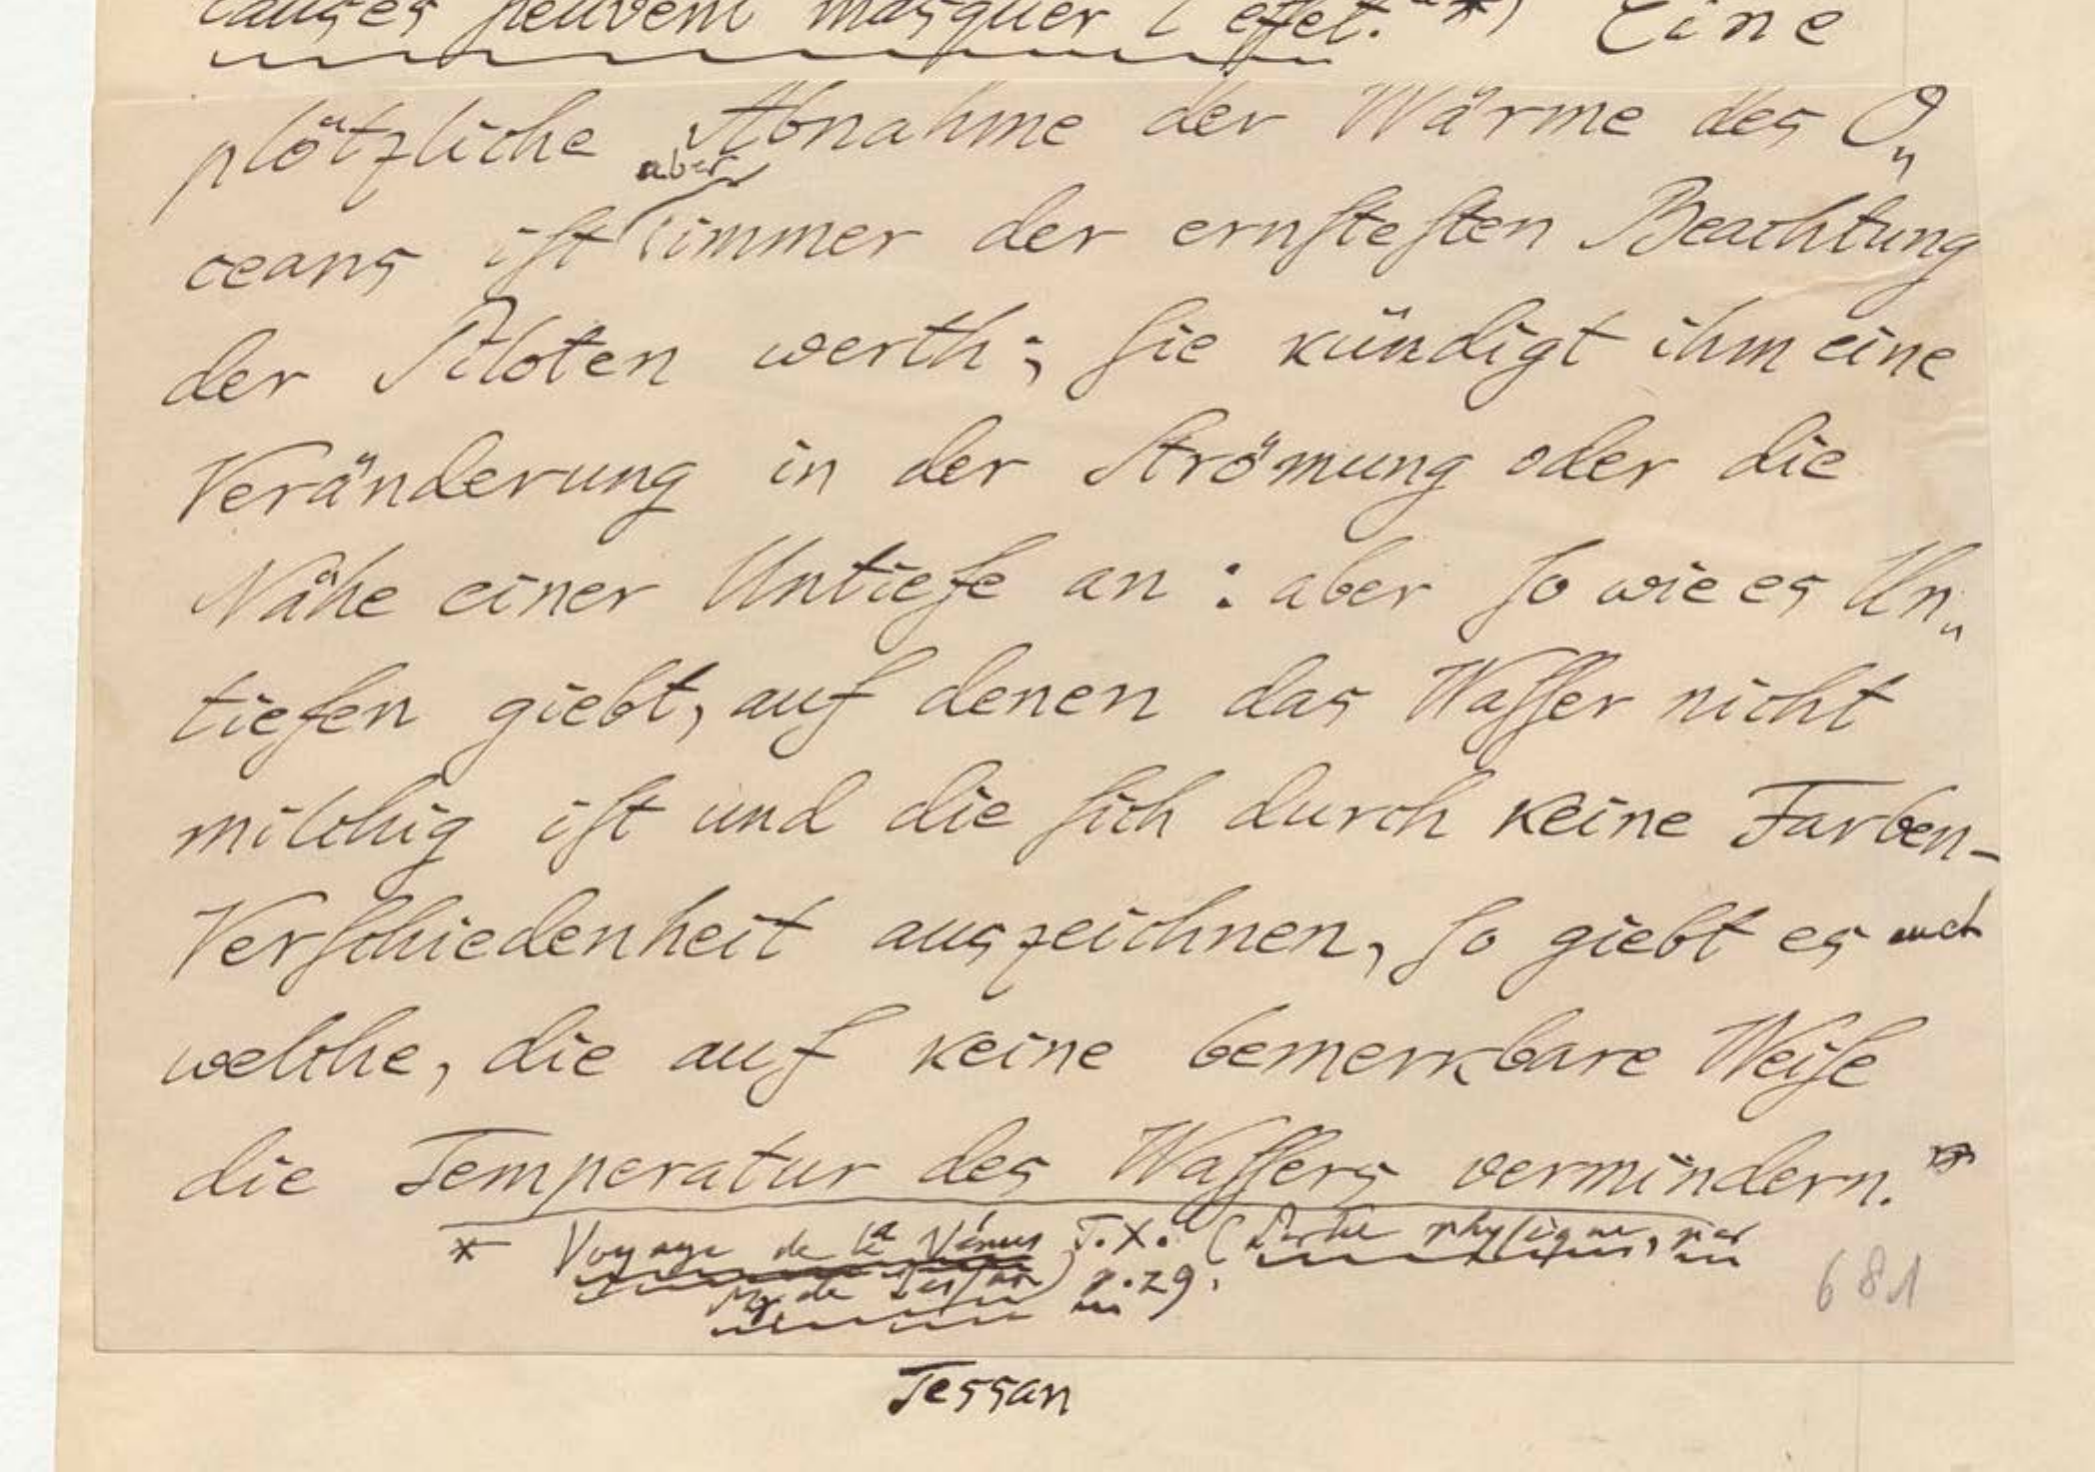 causes peuvent masquer l'effet." *) Eine
plötzliche Abnahme der Wärme des O„
ceans ist aber immer der ernstesten Beachtung
der Piloten werth; sie kündigt ihm eine
Veränderung in der Strömung oder die
Nähe einer Untiefe an: aber so wie es Un„
tiefen giebt, auf denen das Wasser nicht
milchig ist und die sich durch keine Farben-
Verschiedenheit auszeichnen, so giebt es auch
welche, die auf keine bemerkbare Weise
die Temperatur des Wassers vermindern.*
* Voyage de la Vénus T.X. (Partie physique, par
Mr de Tessan) p. 29.
681
Tessan